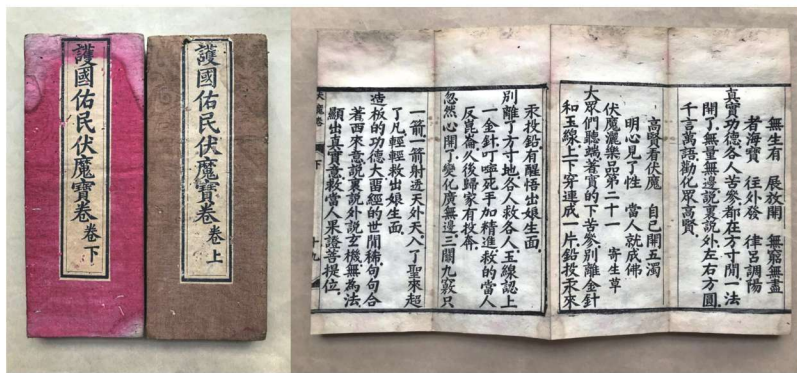 護國佑民伏魔寶卷 卷上
護國佑民伏魔寶卷 卷下
無生有 展放開 無窮無盡
者海寶 往外發 律呂調陽
真實功德各人苦參都在方寸間一法
開了無量無邊說裏說外左右方圓
千言萬語勸化眾高賢
高賢看伏魔 自己開五濁
明心見了性 當人就成佛
伏魔灑樂品第二十一 寄生草
大眾們聽端着實的下苦參別離金針
和玉線上下穿連成一片鉛投汞來
汞投鉛有醒悟出娘生面
別離了方寸地各人救各人玉線認上
一金針叮嚀死手加精進救的當人
反崑崙久後歸家有投奔
忽然心開了變化廣無邊三關九竅只
一箭一箭射透天外天入了聖來超
了凡輕輕救出娘生面
造板的功德大留經的世間稀句句合
著西來意說裏說外說玄機無為法
顯出真實意救當人果證菩提位
下 十九